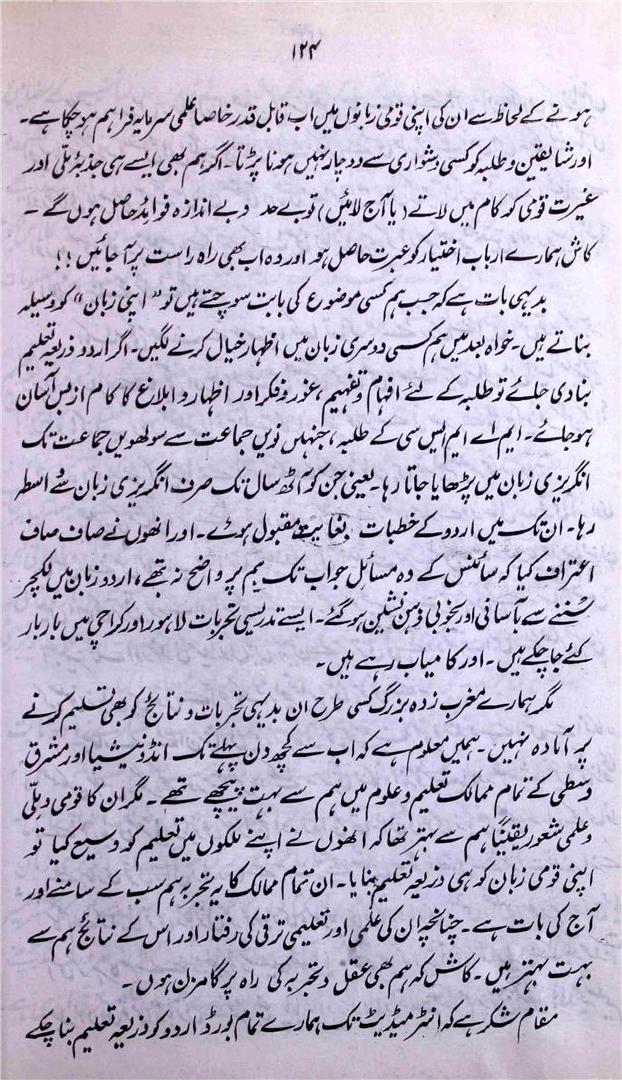 ۱۲۴
ہونے کے لحاظ سے ان کی اپنی قومی زبانوں میں اب قابل قدر خاصا علمی سرمایہ فراہم ہو چکا ہے۔
اور شایقین و طلبہ کو کسی دشواری سے دوچار نہیں ہونا پڑتا۔ اگر ہم بھی ایسے ہی جذبۂ ملّی اور
غیرت قومی کو کام میں لاتے (یا آج لائیں) تو بے حد و بے اندازہ فوائد حاصل ہوں گے۔
کاش ہمارے ارباب اختیار کو عبرت حاصل ہو اور وہ اب بھی راہ راست پر آ جائیں !!
بدیہی بات ہے کہ جب ہم کسی موضوع کی بابت سوچتے ہیں تو "اپنی زبان" کو وسیلہ
بناتے ہیں۔ خواہ بعد میں ہم کسی دوسری زبان میں اظہار خیال کرنے لگیں۔ اگر اردو ذریعہ تعلیم
بنا دی جائے تو طلبہ کے لئے افہام و تفہیم، غور و فکر اور اظہار و ابلاغ کا کام از بس آسان
ہو جائے۔ ایم اے ایم ایس سی کے طلبہ، جنہیں نویں جماعت سے سولھویں جماعت تک
انگریزی زبان میں پڑھایا جاتا رہا۔ یعنی جن کو آٹھ سال تک صرف انگریزی زبان سے واسطہ
رہا۔ ان تک میں اردو کے خطبات بغایت مقبول ہوئے۔ اور انھوں نے صاف صاف
اعتراف کیا کہ سائنس کے وہ مسائل جو اب تک ہم پر واضح نہ تھے، اردو زبان میں لکچر
سننے سے بآسانی اور بخوبی ذہن نشین ہو گئے۔ ایسے تدریسی تجربات لاہور اور کراچی میں بار بار
کئے جا چکے ہیں۔ اور کامیاب رہے ہیں۔
مگر ہمارے مغرب زدہ بزرگ کسی طرح ان بدیہی تجربات و نتائج کو بھی تسلیم کرنے
پر آمادہ نہیں۔ ہمیں معلوم ہے کہ اب سے کچھ دن پہلے تک انڈونیشیا اور مشرق
وسطی کے تمام ممالک تعلیم و علوم میں ہم سے بہت پیچھے تھے۔ مگر ان کا قومی و ملّی
و علمی شعور یقیناً ہم سے بہتر تھا کہ انھوں نے اپنے ملکوں میں تعلیم کو وسیع کیا تو
اپنی قومی زبان کو ہی ذریعہ تعلیم بنایا۔ ان تمام ممالک کا یہ تجربہ ہم سب کے سامنے اور
آج کی بات ہے۔ چنانچہ ان کی علمی اور تعلیمی ترقی کی رفتار اور اس کے نتائج ہم سے
بہت بہتر ہیں۔ کاش کہ ہم بھی عقل و تجربہ کی راہ پر گامزن ہوں۔
مقام شکر ہے کہ انٹرمیڈیٹ تک ہمارے تمام بورڈ اردو کو ذریعہ تعلیم بنا چکے